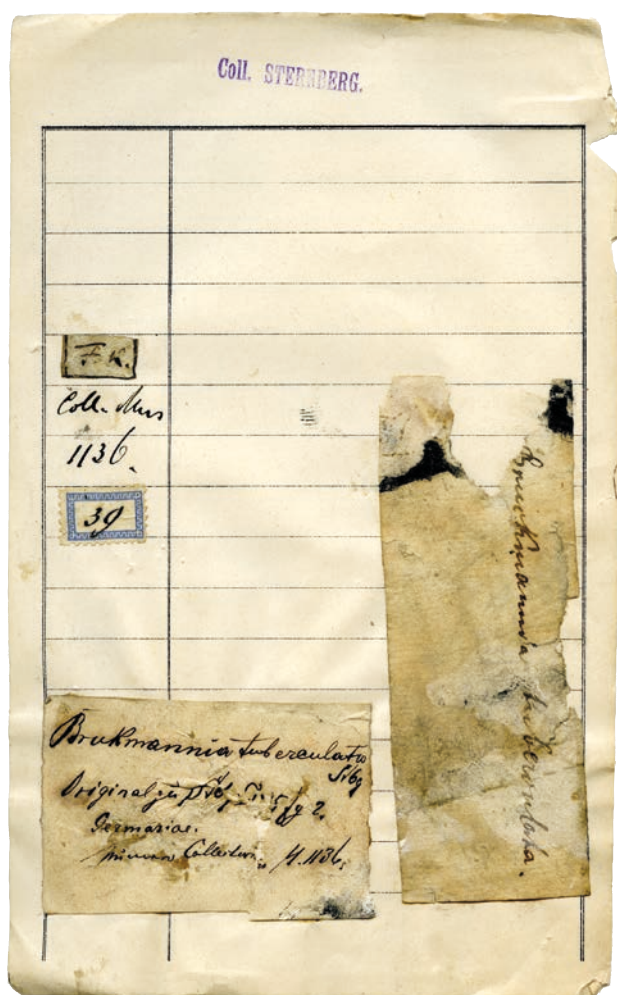 Coll. STERNBERG.
F. K.
Coll. Mus
1136.
39
Bruckmannia tuberculata.
Brukmannia tuberculata
Stbg
Original zu T. fg 2.
Germariae.
Collection. 4.1136.